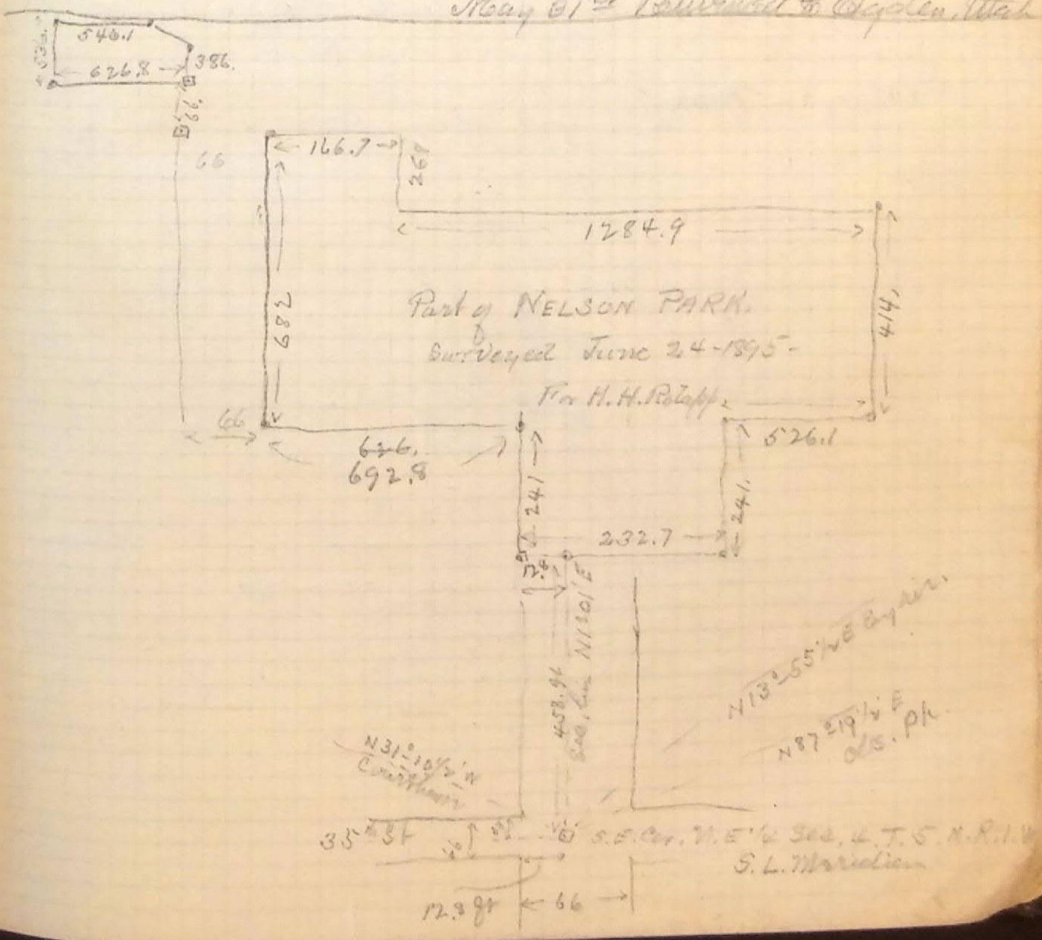 May 31st & Ogden, Utah
546.1
626.8
386.
66.
66
166.7
269
1284.9
682
414.
Part of NELSON PARK.
Surveyed June 24-1895-
For H.H. Rolapp.
66
626.
692.8
526.1
241
241.
232.7
12.8
N1°01'E
458.9ft
Sec. Lin
N13°-55½E
N87°19½'E
N31°10½'W
Courthouse
35th St
S.E. Cor. N.E ¼ Sec. 4. T. 5. N. R. 1. W
S.L. Meridian
12.8ft
66